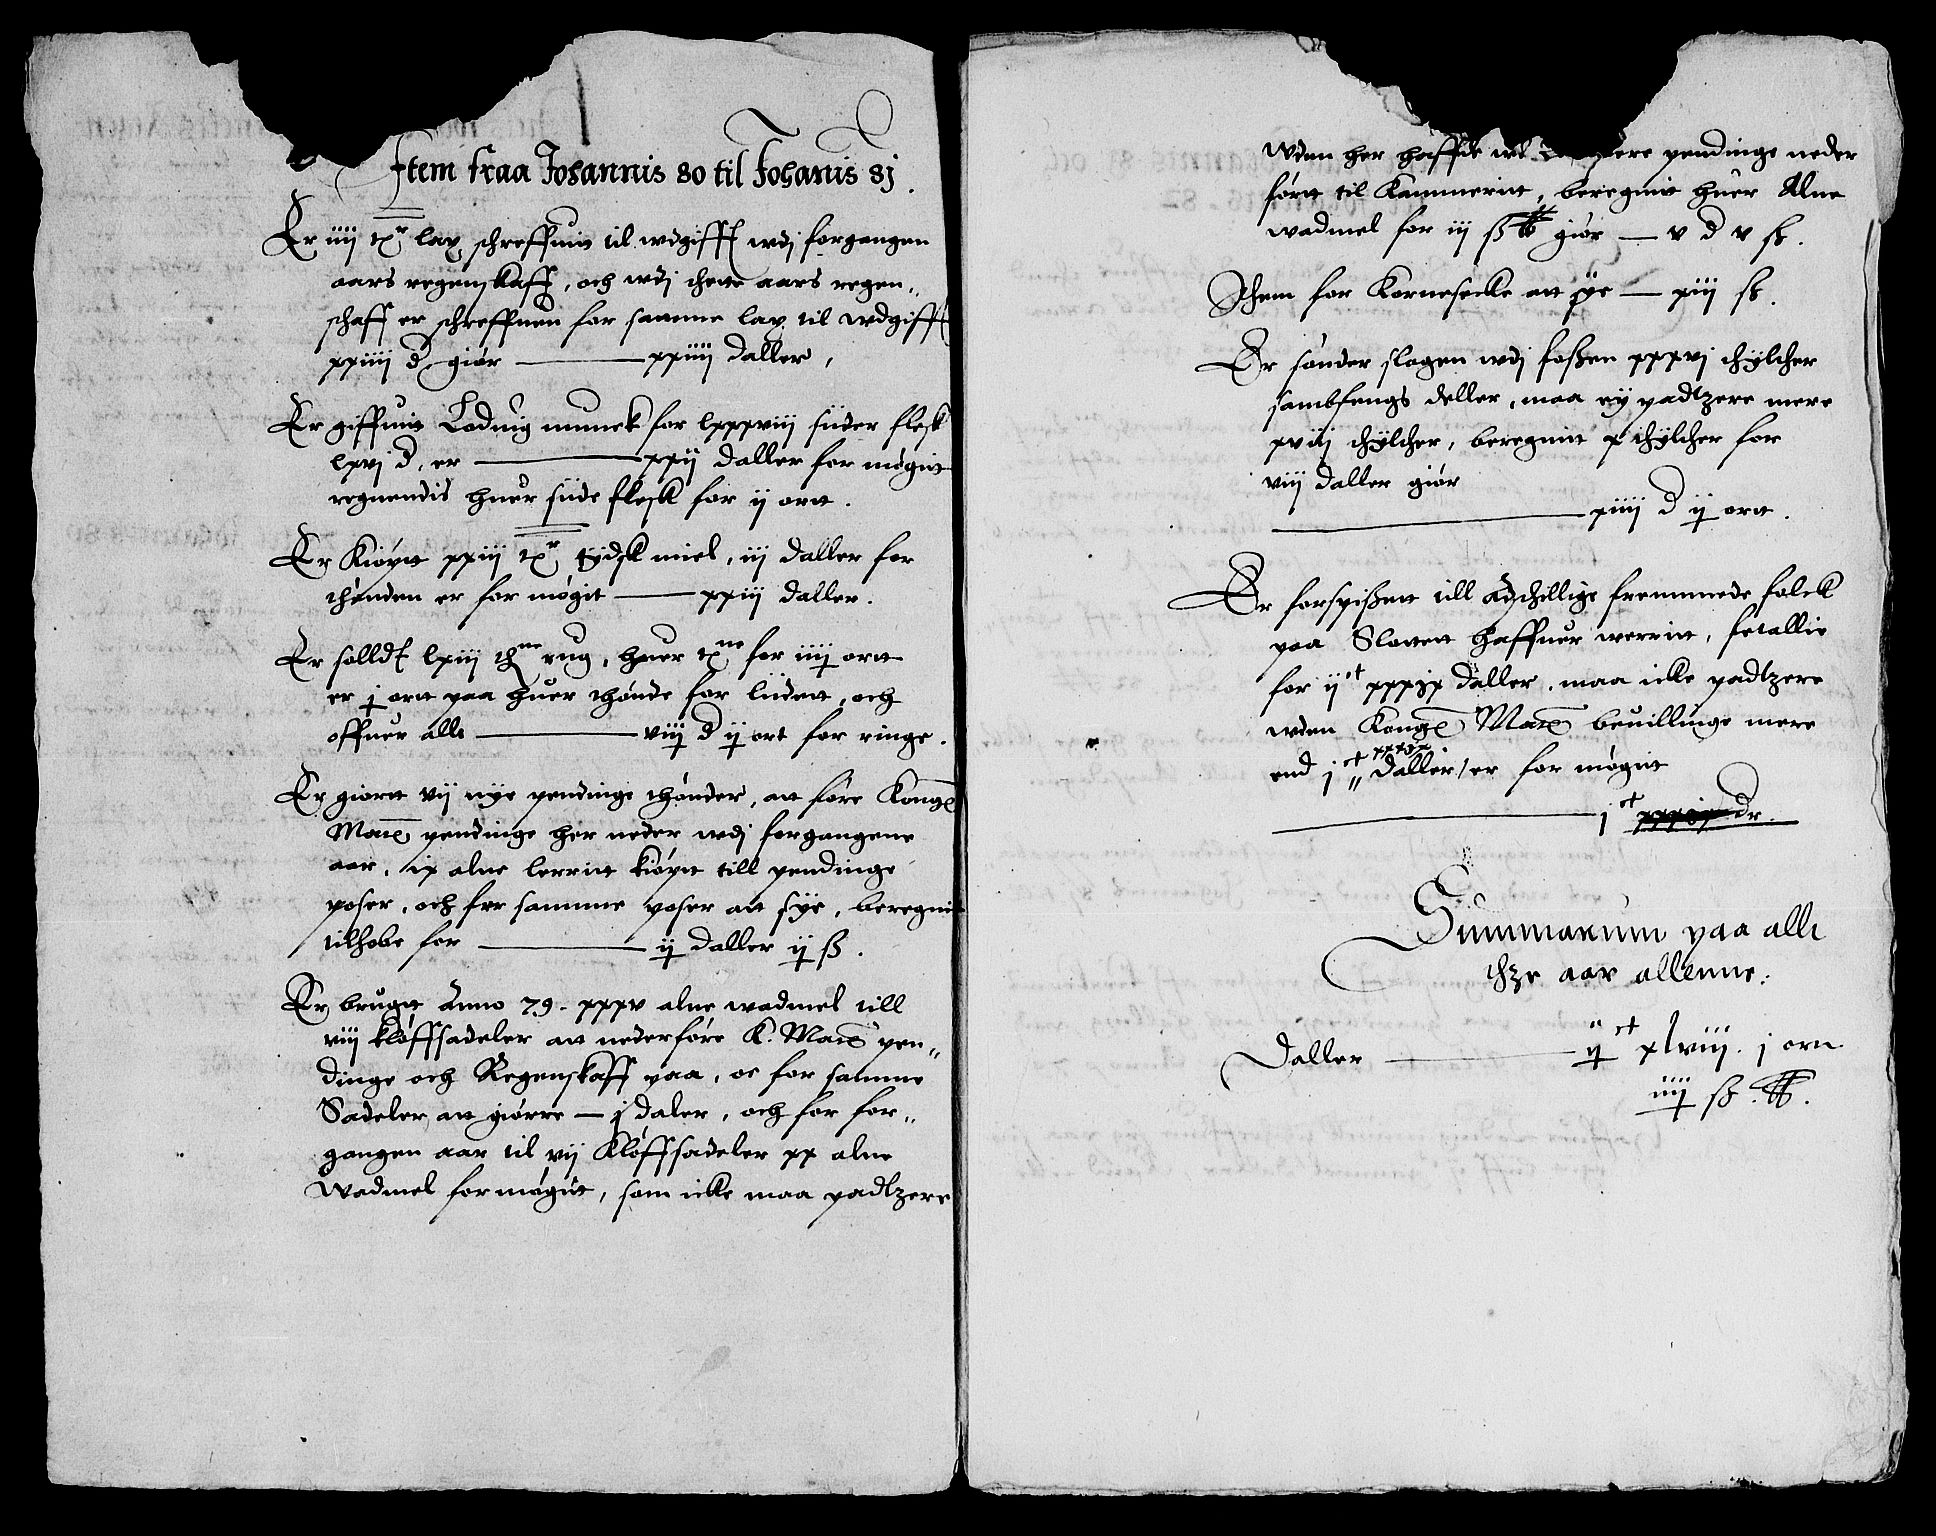 Item fraa Johannis 80 til Johanis 8j.
Er iiij txr lax schreffuit til wdgifft wdj forgangen
aars regenskaff, och wdj thette aars regen„
schaff er schreffuen for samme lax til wdgifft
xxiiij d. giør —— xxiiij daller,
Er giffuit Loduig munck for lxxxviij siider flesk
lxvj d, er —— xxij daller for møgit
regnendis huer siide flesk for ij ort.
Er Kiøpt xxiij txr tydsk miel, iij daller for
thønden er for møgit —— xxiij daller.
Er solldt lxiij thne rug, huer txne for iiij ort
er j ort paa huer thønde for liidett, och
offuer alt —— viij d ij ort for ringe.
Er giort vij nye pendinge thønder, att føre Konge
Matz pendinge her neder wdj forgangene
aar, ix alne lerrit kiøpt till pendinge
poser, och for samme poser att sye, beregnit
tilhobe for —— ij daller ij ß.
Er brugt Anno 79. xxxv alne wadmel till
viij kløffsadeler att nederføre K. Matz pen„
dinge och Regenskaff paa, oc for samme
Sadeler att giørre — j daler, och for for„
gangen aar til vij Kløffsadeler xx alne
wadmel for møgit, som icke maa padtzere
wden her haffde pendinge neder
førtt til Kammerit, beregnit huer Alne
wadmel for iij ß giør — v d v ß.
Jthem for Kornesecke att sye — xiij ß.
Er sønder slagen wdj foßen xxxvj thylther
sambfengs deller, maa ey padtzere mere
xviij thylther, beregnit x thylther for
viij daller giør
—— xiiij d ij ort.
Er forspißett till adschillige fremmede folck
paa Slottett haffuer werritt, fetallie
for ijct xxxix daller, maa icke padtzere
wden Konge Matz beuillinge mere
end jct xxxix daller / er for møgit
—— jct xxxix dr.
Summarum paa alle
thze aar allenne.
Daller —— ijct xlviij. j ort
iiij ß.